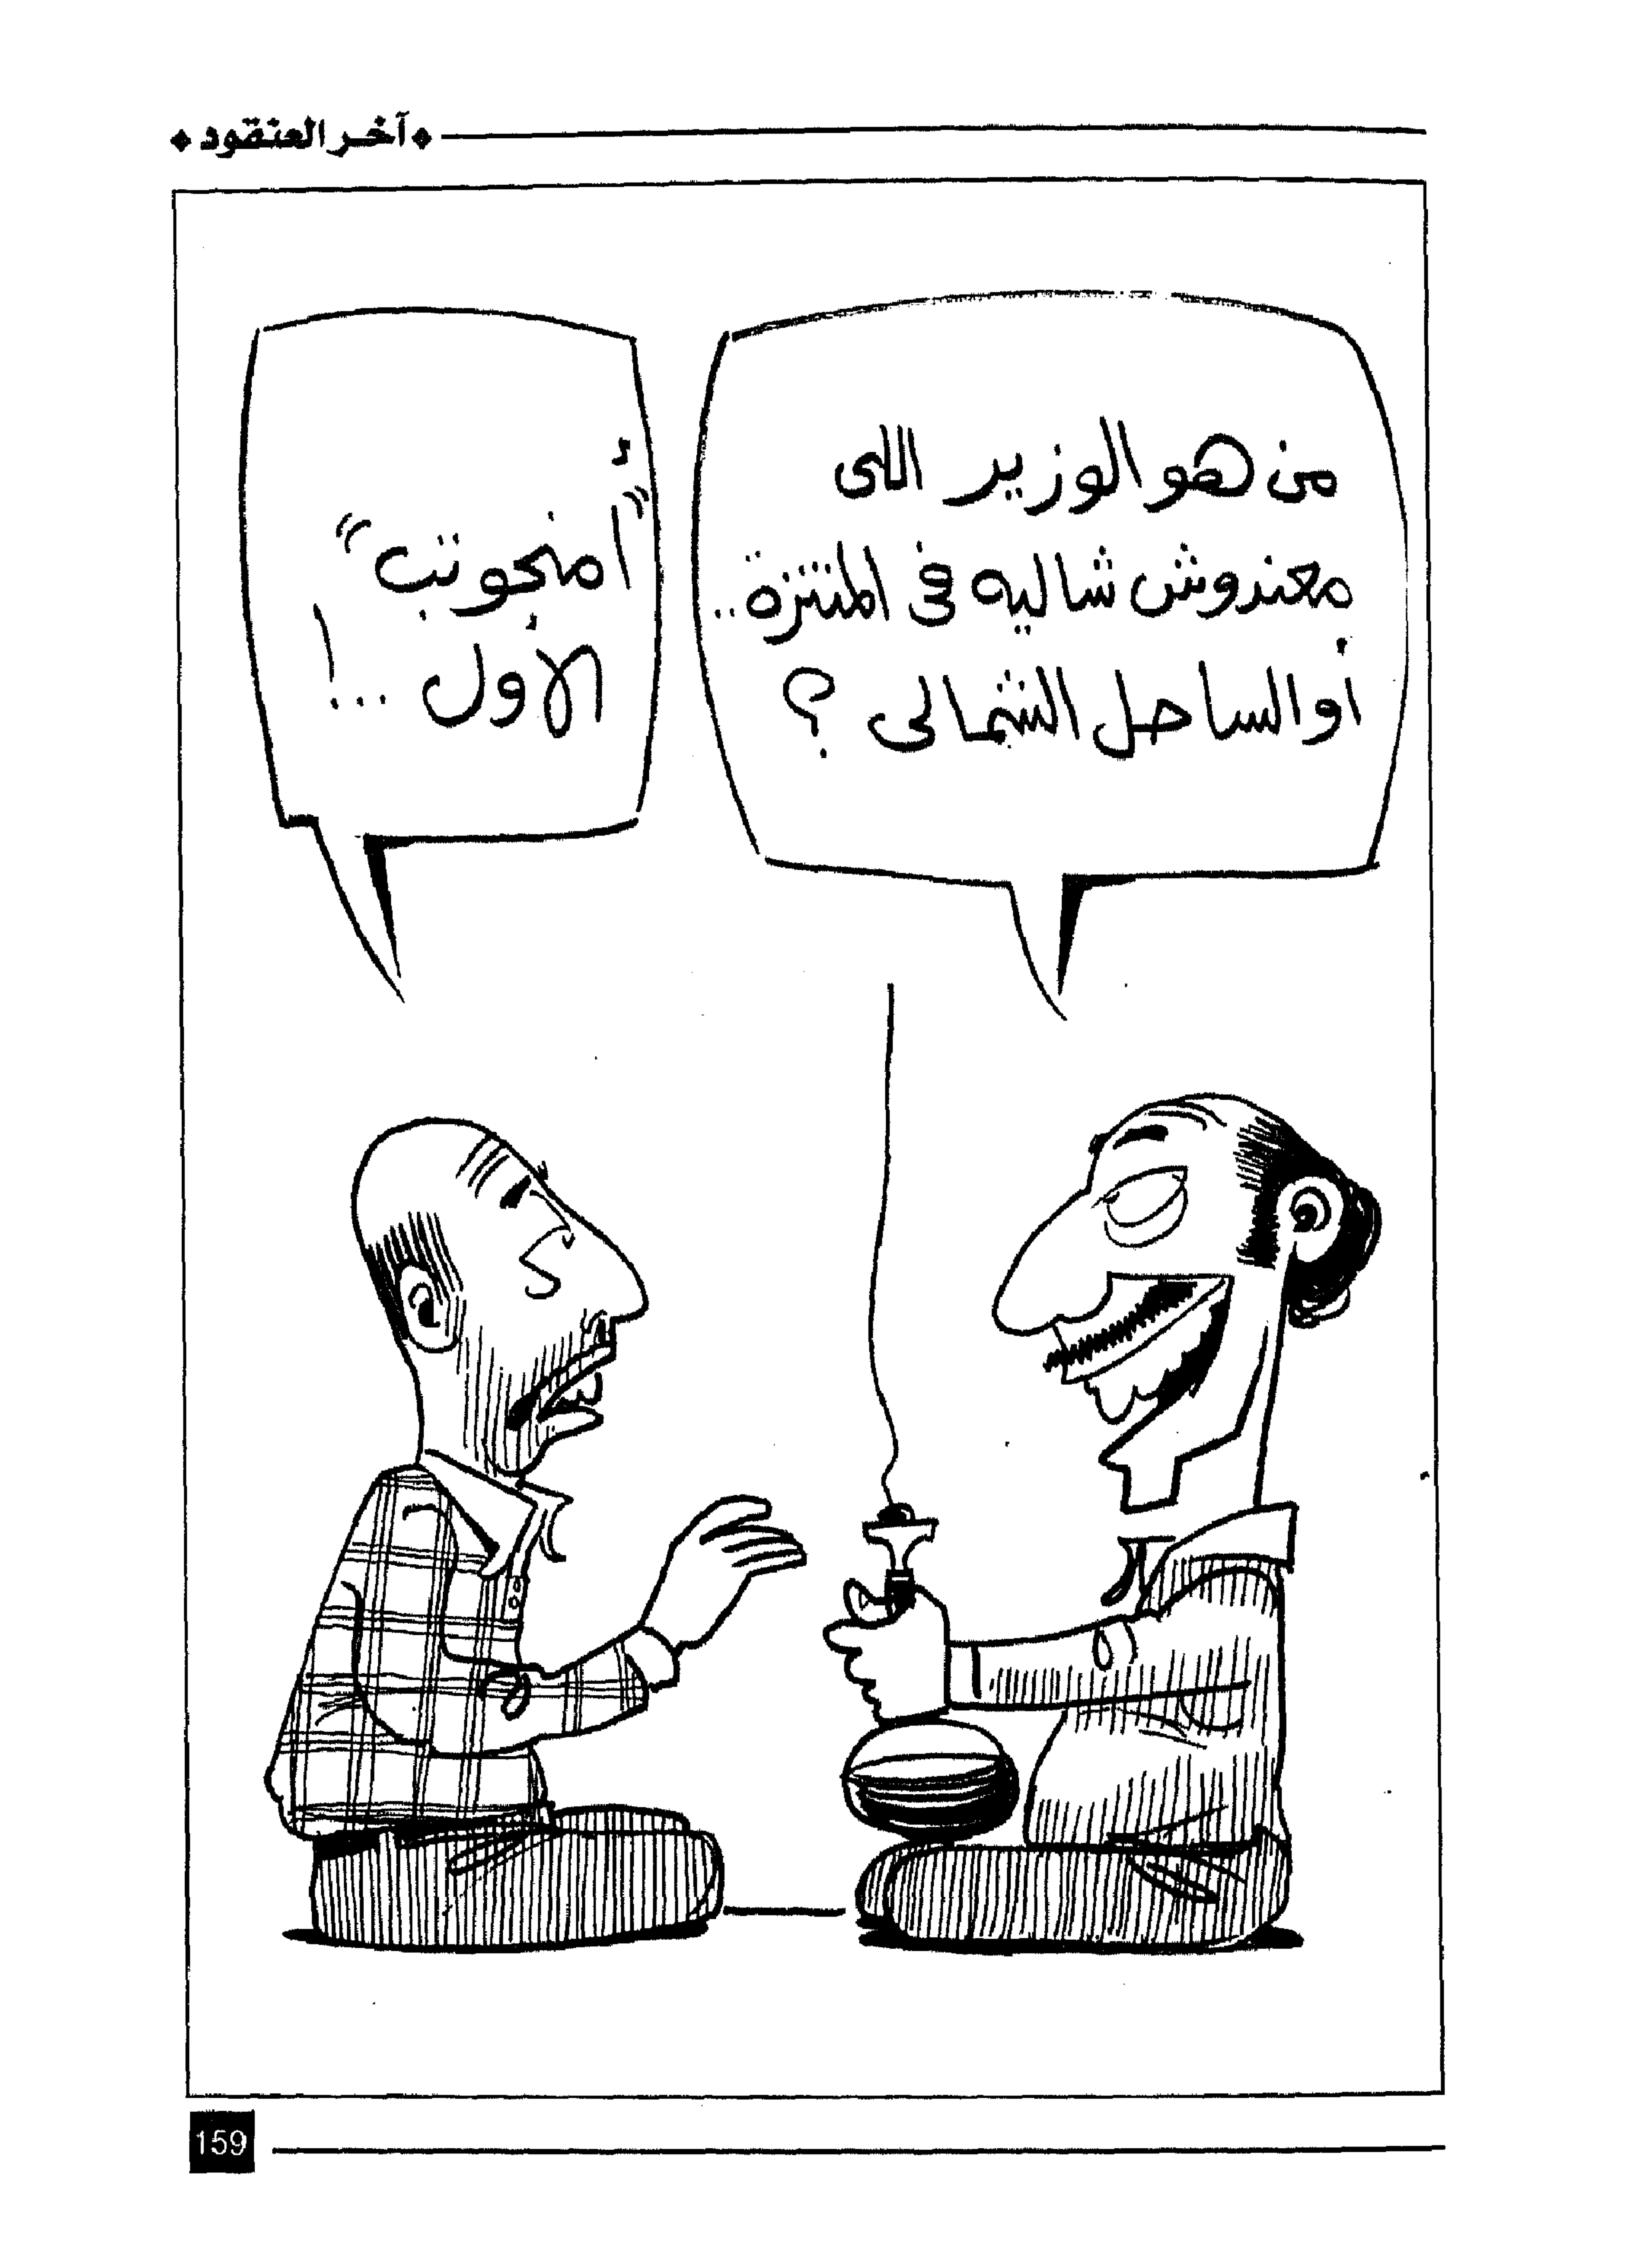 آخر العنقود
من هو الوزير اللى
معندوش شاليه فى المنتزة..
أو الساحل الشمالى ؟
"أمنحوتب"
الأول ...!
159